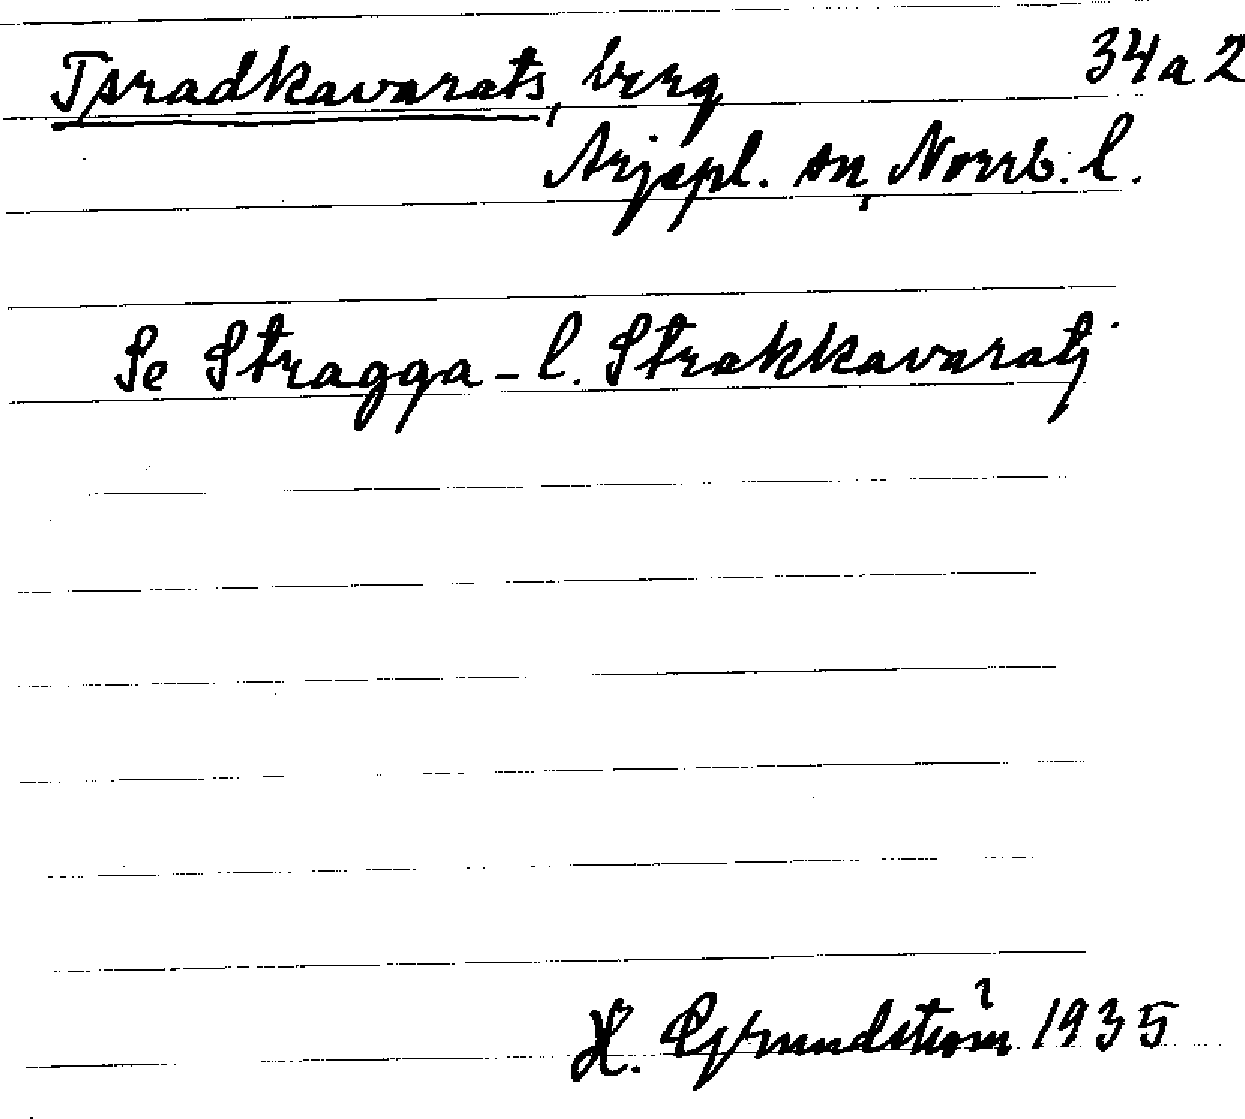 Tsradkavarats, berg 34a2
Arjepl. sn, Norrb. l.
Se Stragga- l. Strakkavaratj
H. Grundström 1935